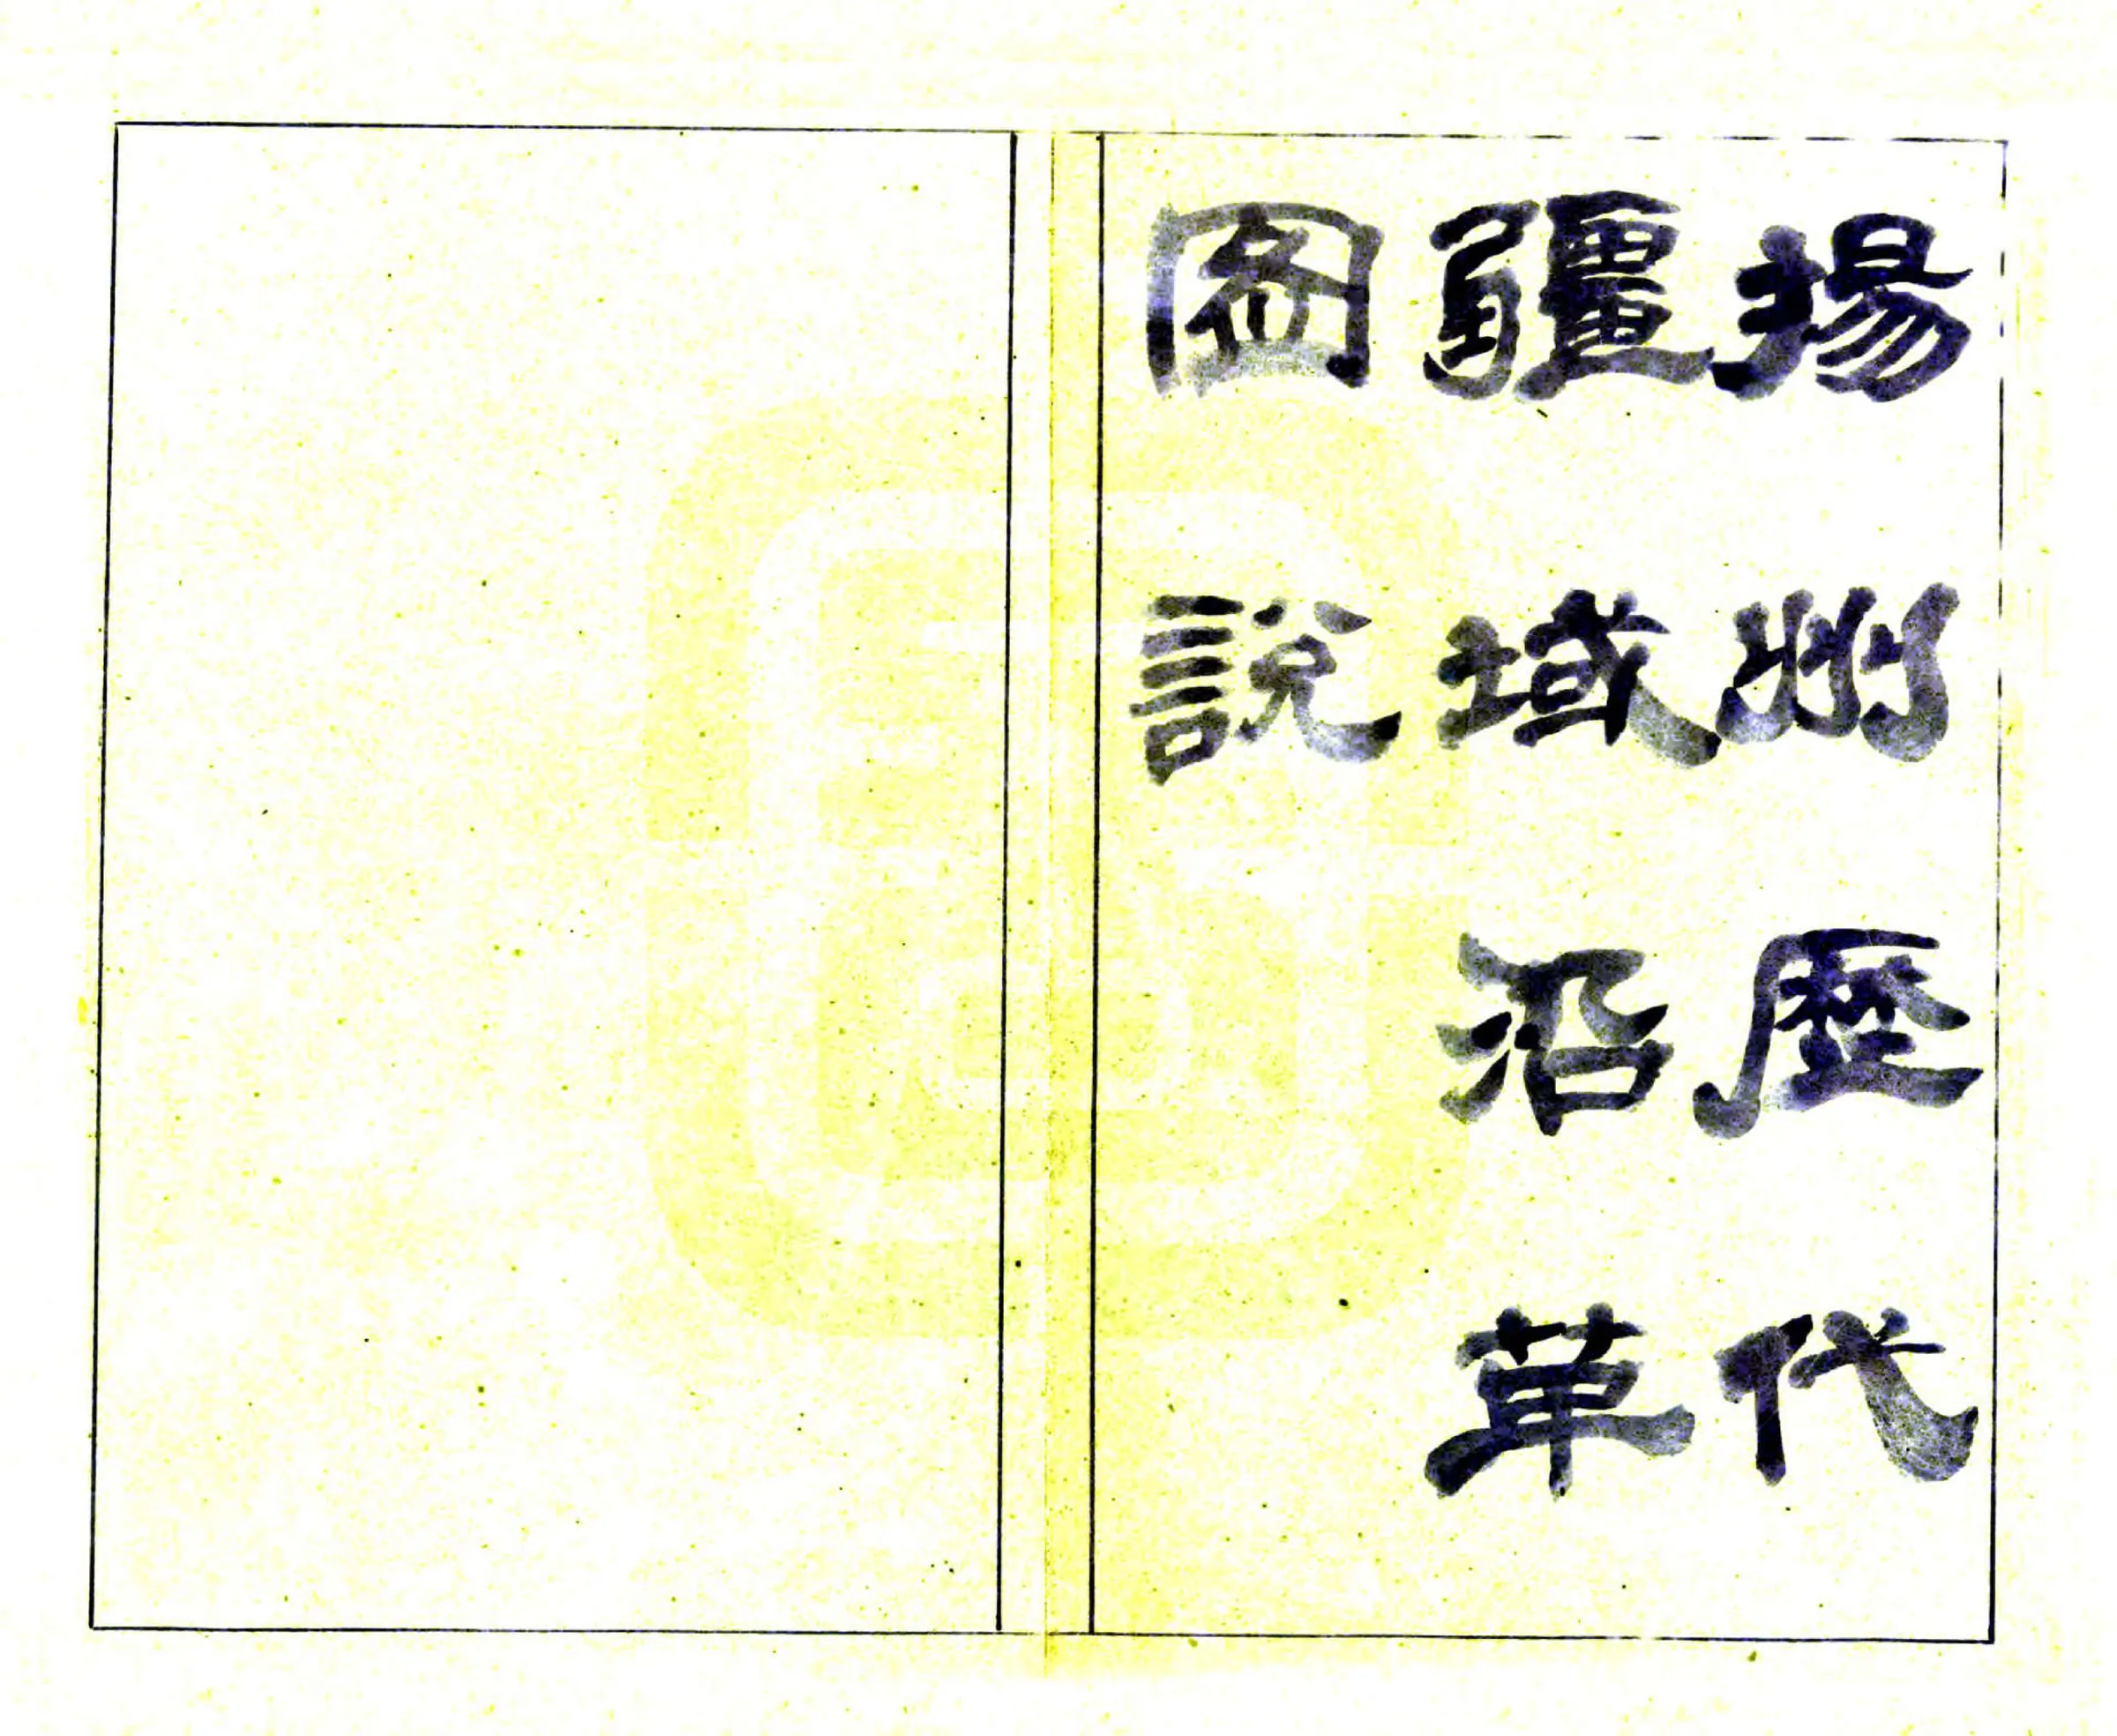 揚州歷代
疆域沿革
圖說